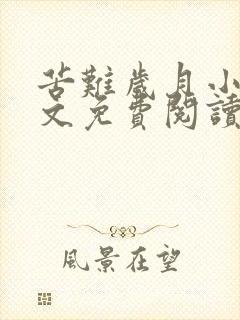 苦難歲月小
文免費閱讀
風景在望